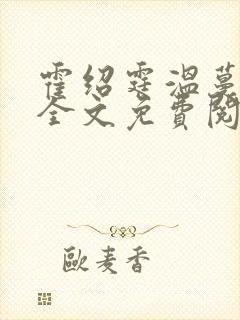 霍绍霆温蔓
全文免費閱
歐麦香